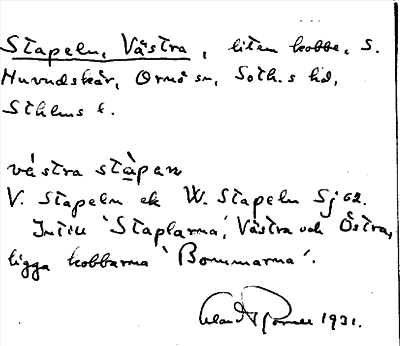 Stapeln, Västra, liten kobbe, S.
Huvudskär, Ornö sn, Soth.s hd,
Sthlms l.
västra stàpan
V. Stapeln ek W. Stapeln Sj 62.
Intill 'Staplarna', Västra och Östra,
ligga kobbarna 'Bommarna'.
1931.